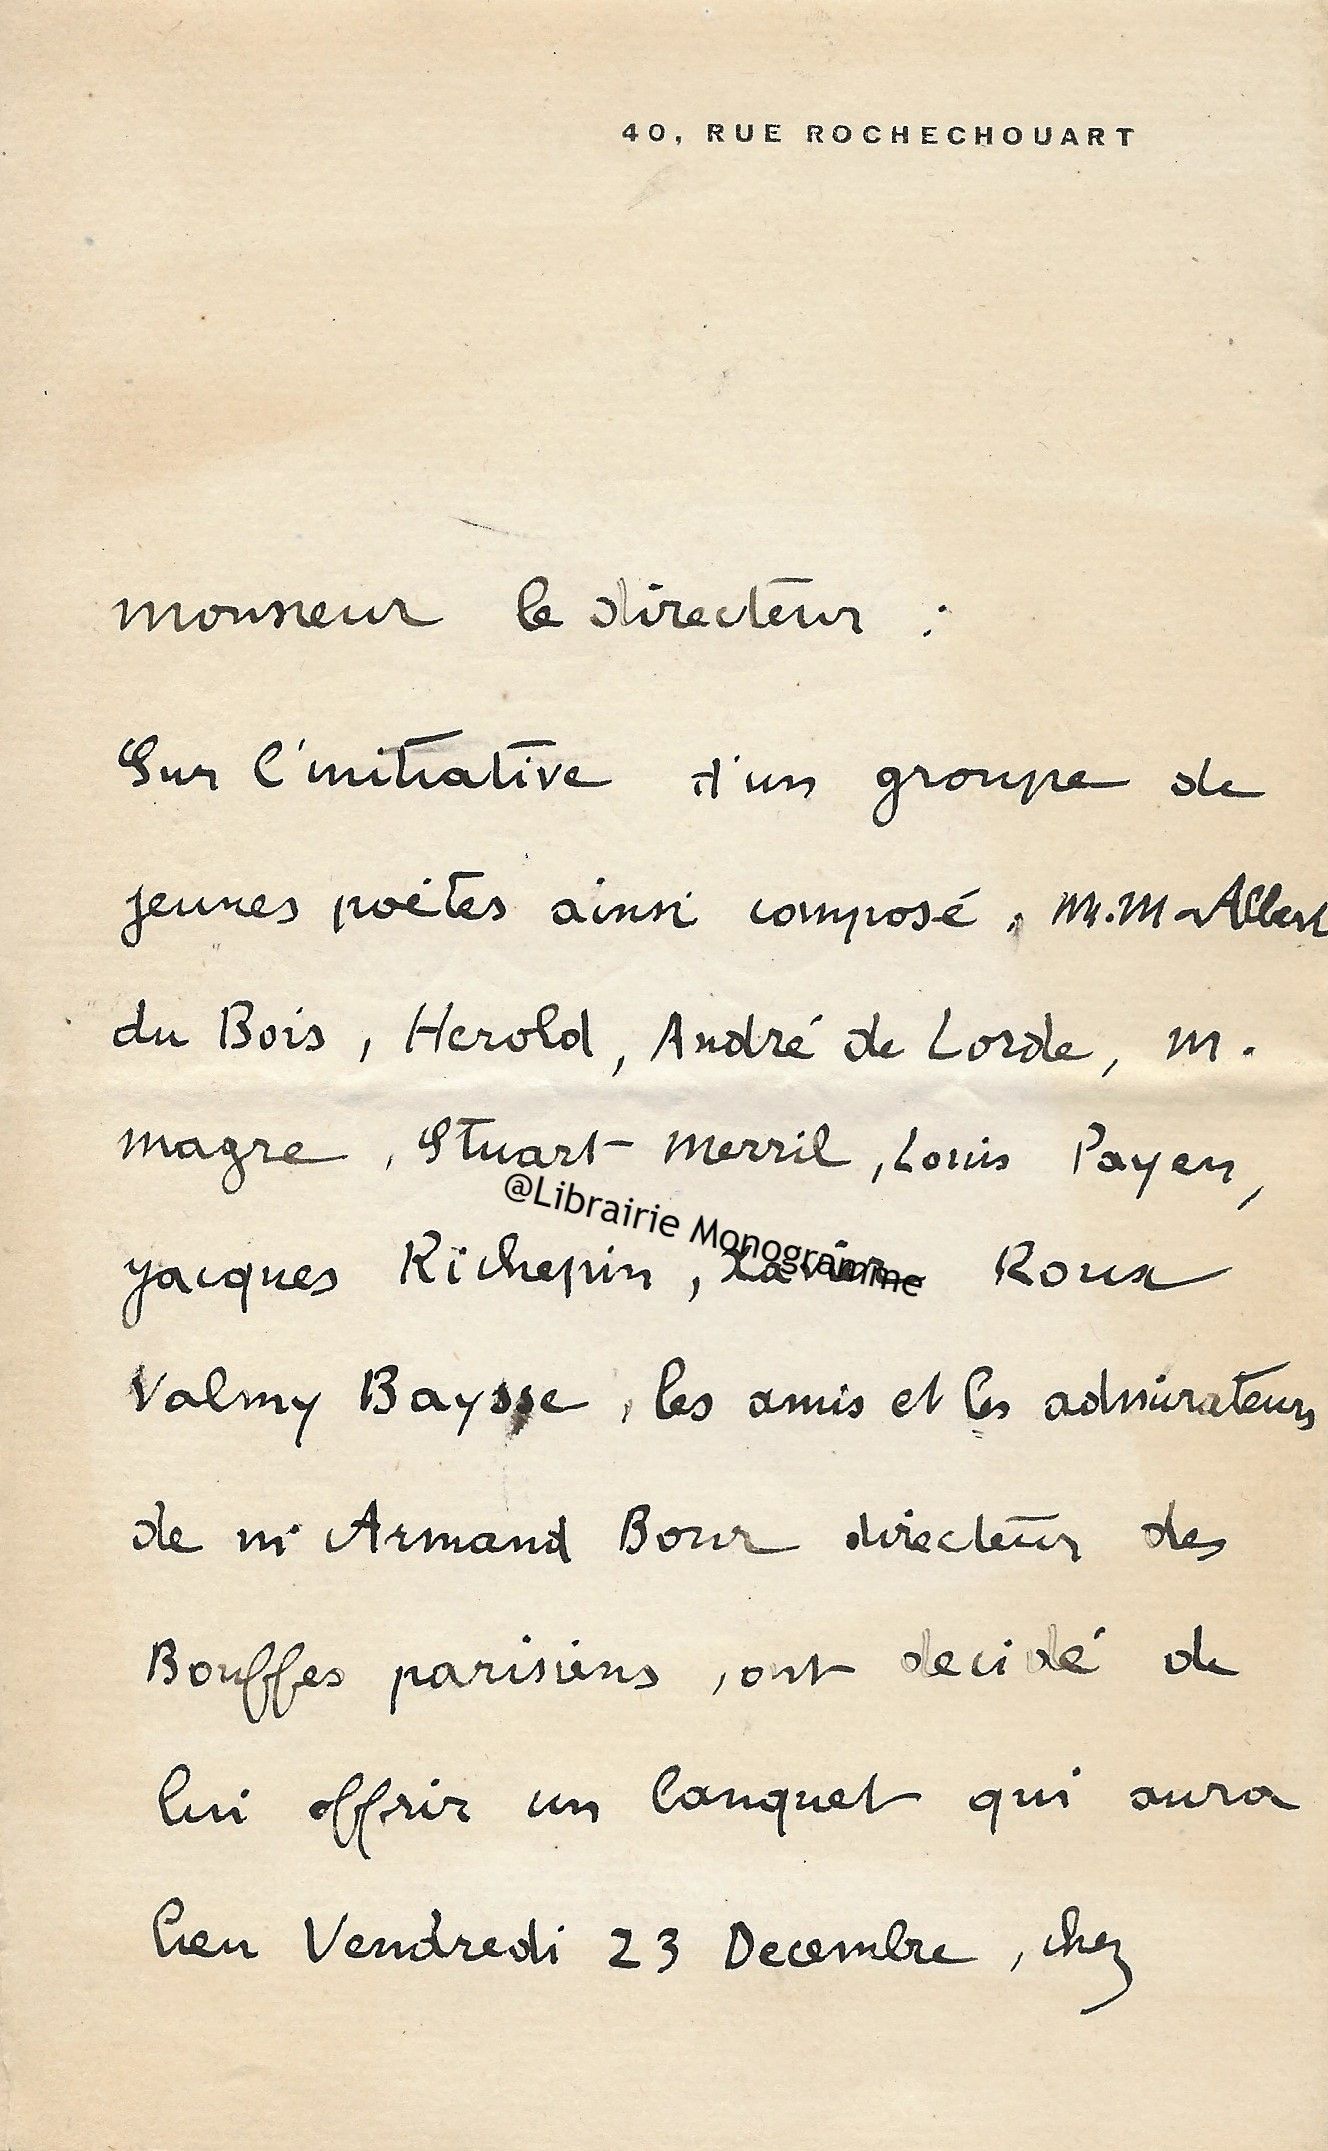 40, RUE ROCHECHOUART
Monsieur le directeur :
Sur l'initiative d'un groupe de
jeunes poètes ainsi composé, M.M Albert
du Bois, Herold, André de Lorde, M.
Magre, Stuart Merril, Louis Payen,
@Librairie Monogramme
Jacques Richepin, Xavier Roux
Valmy Baysse, les amis et les admirateurs
de Mr Armand Bour directeur des
Bouffes parisiens, ont decidé de
lui offrir un banquet qui aura
lieu Vendredi 23 Decembre, chez